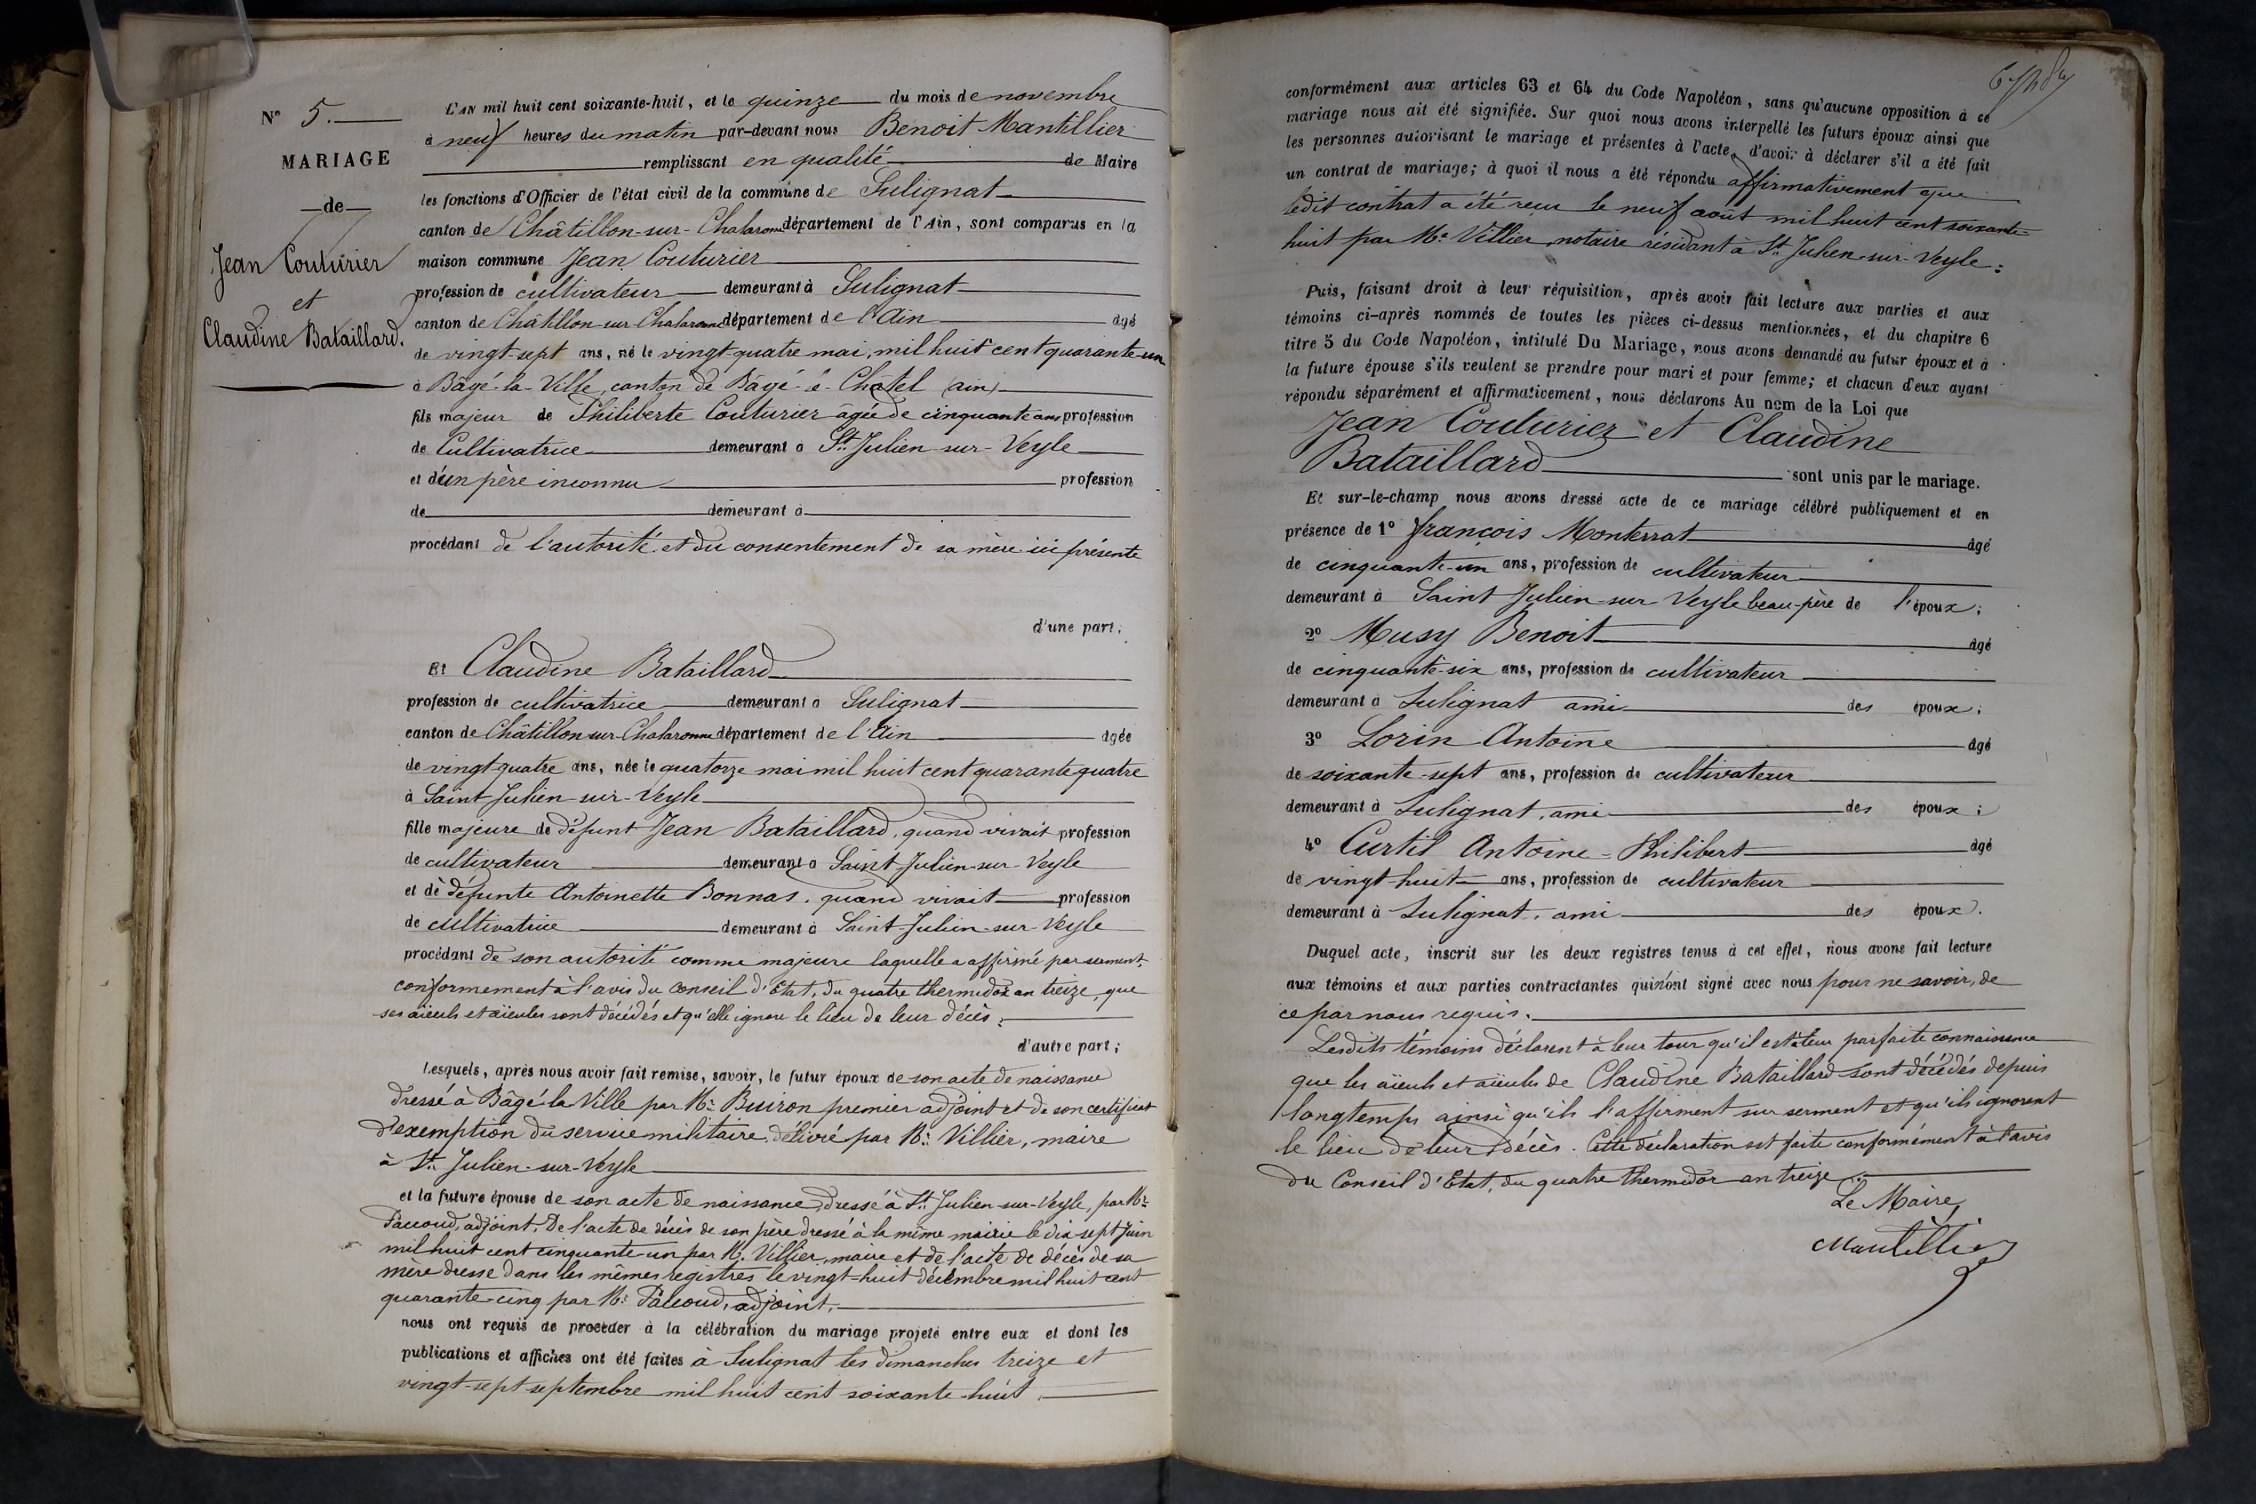 N° 5.
MARIAGE
de
Jean Couturier
et
Claudine Bataillard.
L'AN mil huit cent soixante-huit, et le quinze du mois de novembre
à neuf heures du matin par-devant nous Benoit Mantillier
remplissant en qualité de Maire
les fonctions d'Officier de l'état civil de la commune de Sulignat
canton de Châtillon-sur-Chalaronne département de l'Ain, sont comparus en la
maison commune Jean Couturier
profession de cultivateur demeurant à Sulignat
canton de Châtillon-sur Chalaronne département de l'Ain âgé
de vingt-sept ans, né le vingt-quatre mai, mil huit cent quarante-un
à Bâgé-la-Ville, canton de Bâgé-le-Châtel (ain)
fils majeur de Philiberte Couturier âgée de cinquante ans profession
de Cultivatrice demeurant à St Julien-sur-Veyle
et d'un père inconnu profession
de demeurant à
procédant de l'autorité et du consentement de sa mère ici présente
d'une part;
Et Claudine Bataillard
profession de cultivatrice demeurant à Sulignat
canton de Châtillon-sur-Chalaronne département de l'Ain âgée
de vingt-quatre ans, née le quatorze mai mil huit cent quarante quatre
à Saint-Julien-sur-Veyle
fille majeure de défunt Jean Bataillard, quand vivait profession
de cultivateur demeurant à Saint-Julien-sur-Veyle
et de défunte Antoinette Bonnas, quand vivait profession
de cultivatrice demeurant à Saint-Julien-sur-Veyle
procédant de son autorité comme majeure laquelle a affirmé par serment,
conformement à l'avis du Conseil d'Etat, du quatre thermidor an treize, que
ses aïeuls et aïeules sont décédés et qu'elle ignore le lieu de leur décès;
d'autre part;
Lesquels, après nous avoir fait remise, savoir, le futur époux de son acte de naissance
dressé à Bâgé-la-Ville par Mr Buiron premier adjoint et de son certificat
d'exemption du service militaire, délivré par Mr Villier, maire
à St Julien-sur-Veyle
et la future épouse de son acte de naissance, dressé à St Julien-sur-Veyle, par Mr
Pacoud, adjoint. De l'acte de décès de son père dressé à la même mairie le dix sept Juin
mil huit cent cinquante-un par Mr Villier, maire et de l'acte de décès de sa
mère dressé dans les mêmes registres le vingt-huit décembre mil huit cent
quarante-cinq par Mr Pacoud, adjoint.
nous ont requis de procéder à la célébration du mariage projeté entre eux et dont les
publications et affiches ont été faites à Sulignat les dimanches treize et
vingt-sept septembre mil huit cent soixante-huit.
conformément aux articles 63 et 64 du Code Napoléon, sans qu'aucune opposition à ce
mariage nous ait été signifiée. Sur quoi nous avons interpellé les futurs époux ainsi que
les personnes autorisant le mariage et présentes à l'acte, d'avoir à déclarer s'il a été fait
un contrat de mariage; à quoi il nous a été répondu affirmativement que
ledit contrat a été reçu le neuf août mil huit cent soixante-
huit par Me Villier, notaire résidant à St Julien-sur-Veyle:
Puis, faisant droit à leur réquisition, après avoir fait lecture aux parties et aux
témoins ci-après nommés de toutes les pièces ci-dessus mentionnées, et du chapitre 6
titre 5 du Code Napoléon, intitulé Du Mariage, nous avons demandé au futur époux et à
la future épouse s'ils veulent se prendre pour mari et pour femme; et chacun d'eux ayant
répondu séparément et affirmativement, nous déclarons Au nom de la Loi que
Jean Couturier et Claudine
Bataillard sont unis par le mariage.
Et sur-le-champ nous avons dressé acte de ce mariage célébré publiquement et en
présence de 1° françois Monterrat âgé
de cinquante-un ans, profession de cultivateur
demeurant à Saint Julien-sur Veyle beau-père de l'époux;
2° Musy Benoit âgé
de cinquante-six ans, profession de cultivateur
demeurant à Sulignat ami des époux;
3° Lorin Antoine âgé
de soixante-sept ans, profession de cultivateur
demeurant à Sulignat, ami des époux;
4° Curtil Antoine-Philibert âgé
de vingt-huit ans, profession de cultivateur
demeurant à Sulignat, ami des époux.
Duquel acte, inscrit sur les deux registres tenus à cet effet, nous avons fait lecture
aux témoins et aux parties contractantes qui n'ont signé avec nous pour ne savoir, de
ce par nous requis.
Lesdits témoins déclarent à leur tour qu'il est à leur parfaite connaissance
que les aïeuls et aïeules de Claudine Bataillard sont décédés depuis
longtemps ainsi qu'ils l'affirment sur serment et qu'ils ignorent
le lieu de leur décès. Cette déclaration est faite conformément à l'avis
du Conseil d'Etat, du quatre thermidor an treize.
Le Maire,
Mantillier